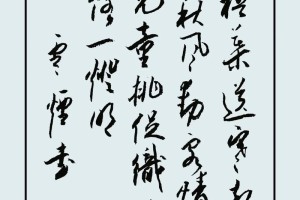 梧葉送寒聲
秋風動客情
兒童挑促織
落一燈明
雲煙書